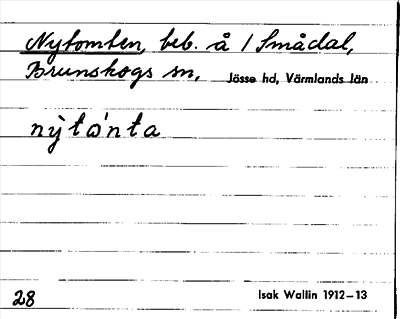 Nytomten, beb. å 1 Smådal,
Brunskogs sn, Jösse hd, Värmlands län
nỳtὼnta
28 Isak Wallin 1912–13